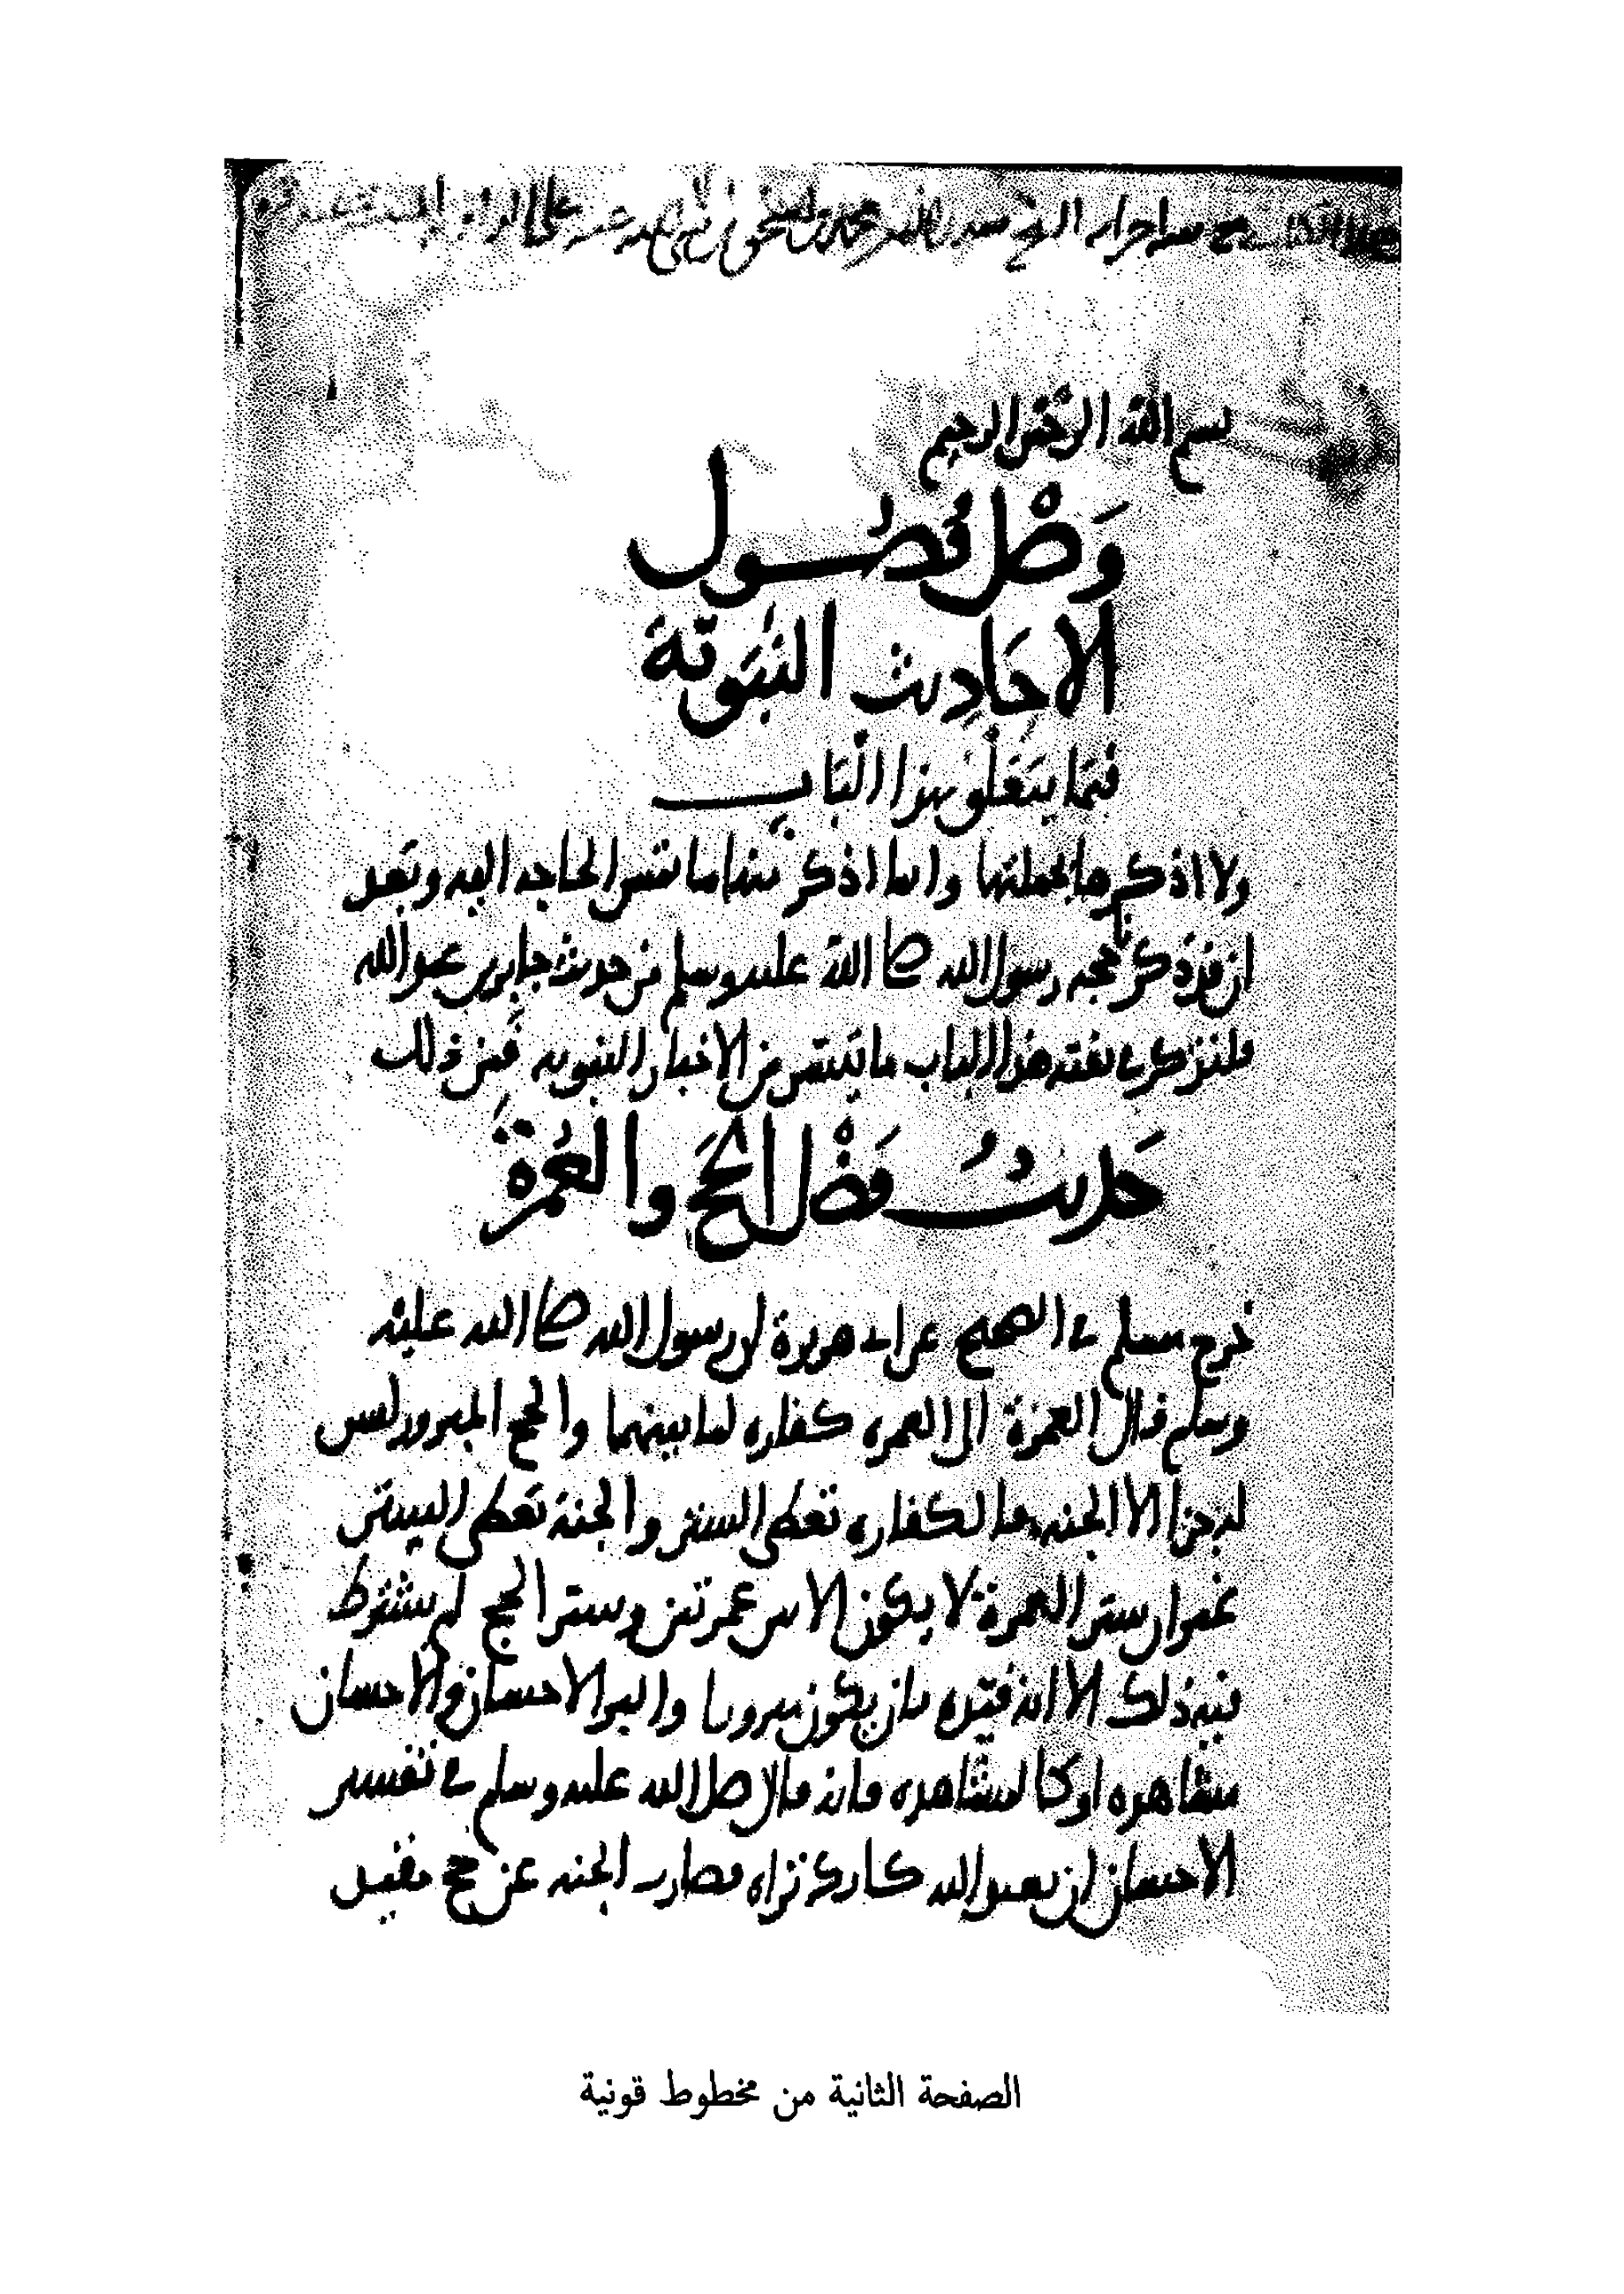 بسم الله الرحمن الرحيم
وَصْل فُصُول
الاحَادِيث النَبَويّة
فيمَا يتَعَلق بهذا الْبَاب
ولا اذكرها بجملتها وانما اذكر منها ما تمس الحاجه اليه وبعد
ان قد ذكرنا حجه رسول الله صلى الله عليه وسلم من حديث جابر بن عبد الله
فلنذكر في هذا الباب ما تيسر من الاخبار النبويه فمن ذلك
حَديثُ فَضْل الحَجّ والعُمرَة
خرج مسلم في الصحيح عن ابي هريرة ان رسول الله صلى الله عليه
وسلم قال العمرة الى العمره كفاره لما بينهما والحج المبرور ليس
له جزا الا الجنه فالكفاره تعطى الستر والجنة تعطى الستر
غير ان ستر العمرة لا يكون الا بين عمرتين وستر الحج لم يشترط
فيه ذلك الا انه قيده بان يكون مبرورا والبر الاحسان والاحسان
مشاهده او كالمشاهده فانه قال صلى الله عليه وسلم في تفسير
الاحسان ان تعبد الله كانك تراه فصارت الجنه عن حج مقيد
الصفحة الثانية من مخطوط قونية